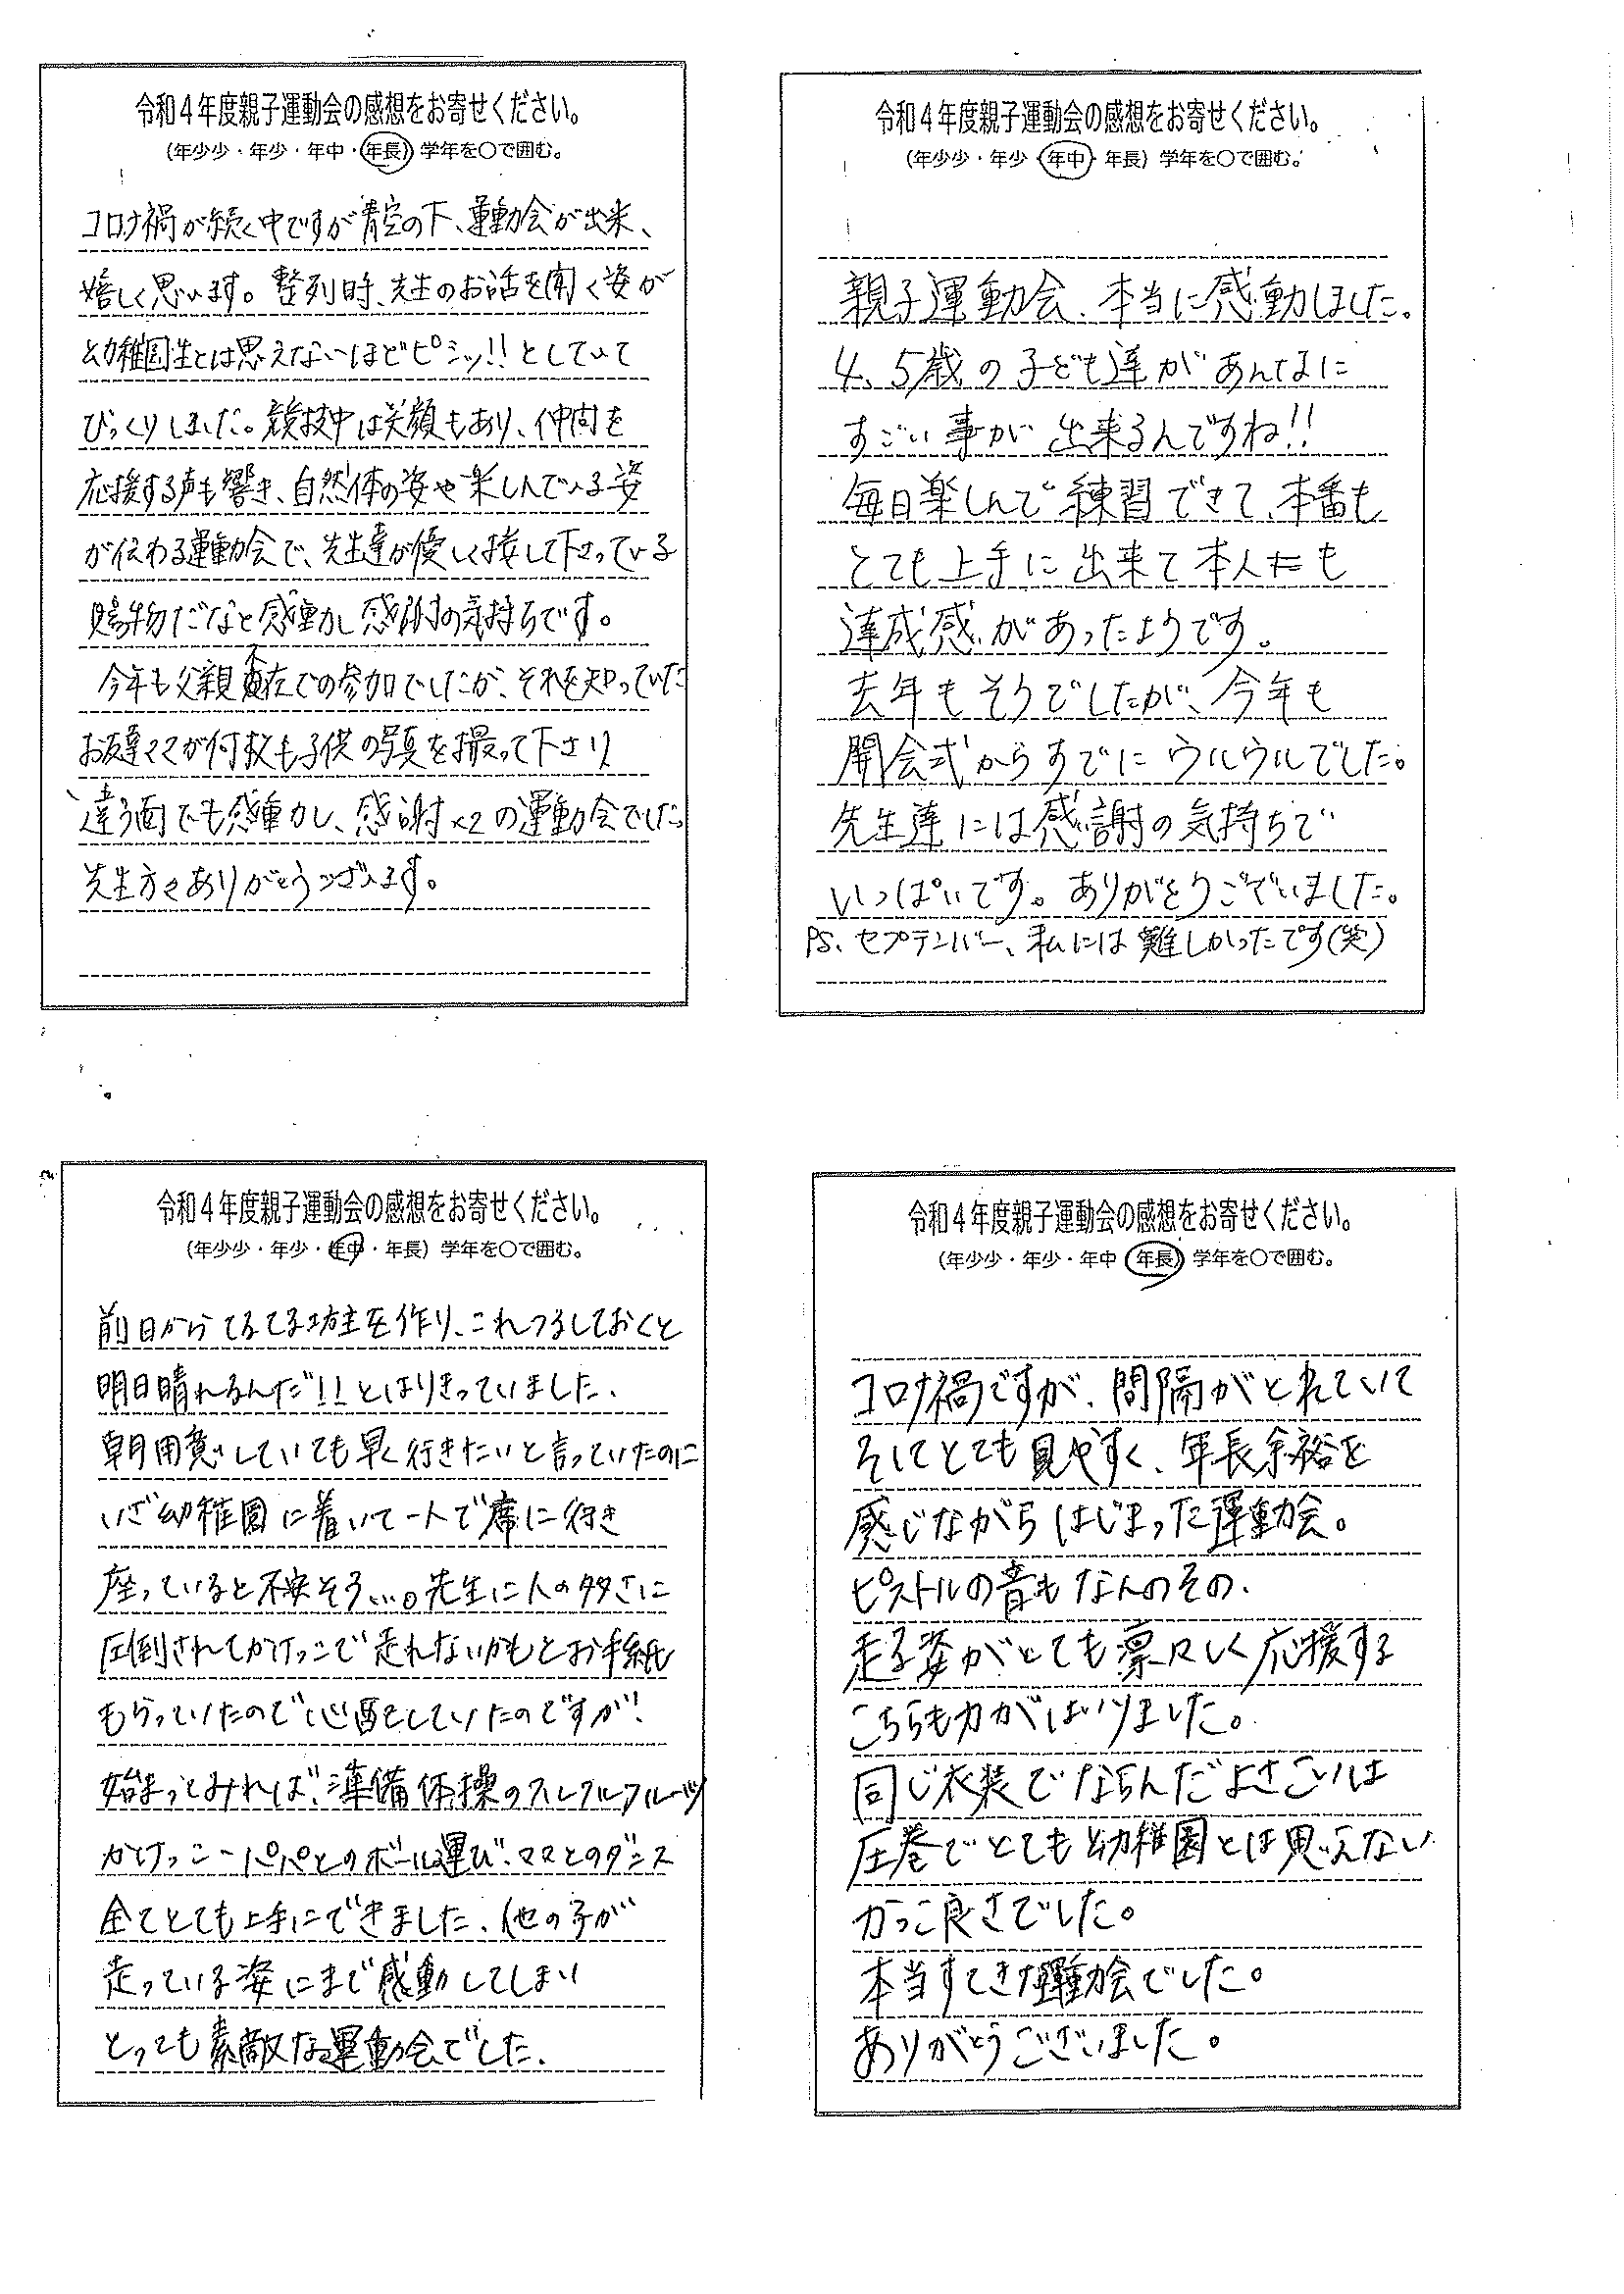 令和4年度親子運動会の感想をお寄せください。
(年少少・年少・年中・年長) 学年を〇で囲む。
コロナ禍が続く中ですが青空の下、運動会が出来、
嬉しく思います。整列時、先生のお話を聞く姿が
幼稚園生とは思えないほどピシッ!!としていて
びっくりしました。競技中は笑顔もあり、仲間を
応援する声も響き、自然体の姿や楽しんでいる姿
が伝わる運動会で、先生達が優しく接して下さっている
賜物だなと感動し感謝の気持ちです。
今年も父親不在での参加でしたが、それを知っていた
お友達ママが何枚も子供の写真を撮って下さり
違う面でも感動し、感謝×2の運動会でした。
先生方々ありがとうございます。
令和4年度親子運動会の感想をお寄せください。
(年少少・年少・年中・年長) 学年を〇で囲む。
親子運動会、本当に感動しました。
4、5歳の子ども達があんなに
すごい事が出来るんですね!!
毎日楽しんで練習できて、本番も
とても上手に出来て本人たちも
達成感があったようです。
去年もそうでしたが、今年も
開会式からすでにウルウルでした。
先生達には感謝の気持ちで
いっぱいです。ありがとうございました。
PS、セプテンバー、私には難しかったです(笑)
令和4年度親子運動会の感想をお寄せください。
(年少少・年少・年中・年長) 学年を〇で囲む。
前日からてるてる坊主を作り、これつるしておくと
明日晴れるんだ!!とはりきっていました、
朝用意していても早く行きたいと言っていたのに
いざ幼稚園に着いて一人で席に行き
座っていると不安そう…。先生に人の多さに
圧倒されてかけっこで走れないかもとお手紙
もらっていたので心配をしていたのですが、
始まってみれば、準備体操のフルフルフルーツ
かけっこ、パパとのボール運び、ママとのダンス
全てとても上手にできました、他の子が
走っている姿にまで感動してしまい
とっても素敵な運動会でした、
令和4年度親子運動会の感想をお寄せください。
(年少少・年少・年中 年長) 学年を〇で囲む。
コロナ禍ですが、間隔がとれていて
そしてとても見やすく、年長余裕を
感じながらはじまった運動会。
ピストルの音もなんのその、
走る姿がとても凛々しく応援する
こちらも力がはいりました。
同じ衣装でならんだよさこいは
圧巻でとても幼稚園とは思えない
かっこ良さでした。
本当すてきな運動会でした。
ありがとうございました。